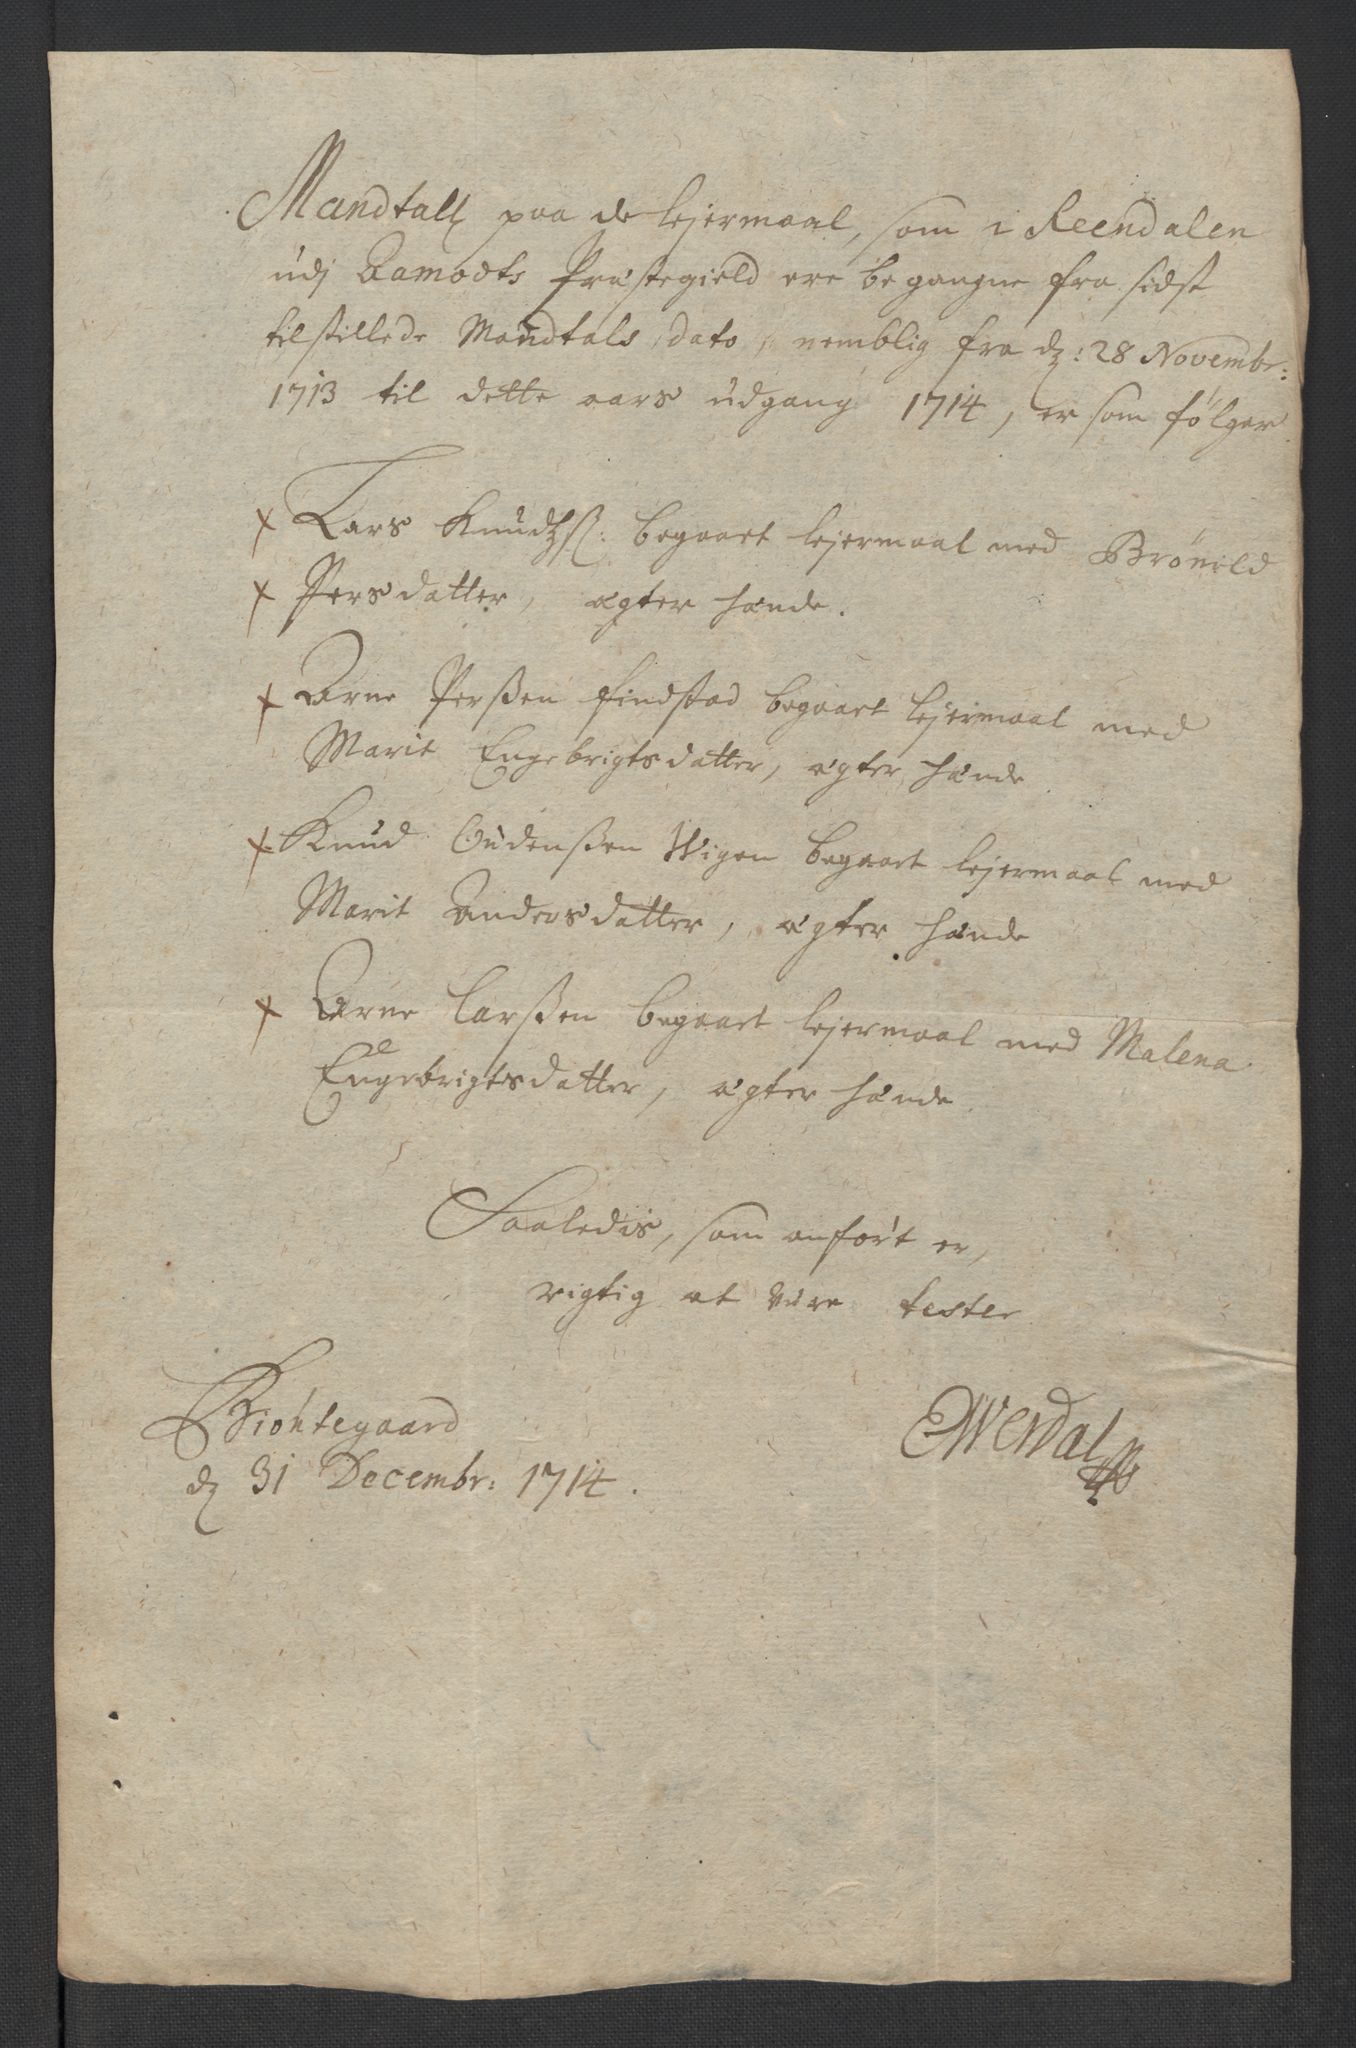 Mandtall paa de lejermaal, som i Reendalen
udj Aamodts Præstegield ere begangne fra sidst
tilstillede Mandtals dato, nemblig fra dʒ: 28 Novembr:
1713 til dette aars udgang 1714, er som følger
Lars Knudtzs: begaaet lejermaal med Brönild
Persdatter, ægter hænde.
Arne Perßen Findstad begaaet lejermaal med
Marit Engebrigtsdatter, ægter hænde
Knud Oudenßen Wigen begaaet lejermaal med
Marit Andersdatter, ægter hænde
Arne Larßen begaaet lejermaal med Malena
Engebrigtsdatter, ægter hænde
Saaledis, som anført er,
rigtig at være tester
dʒ 31 Decembr: 1714.
EWerdal